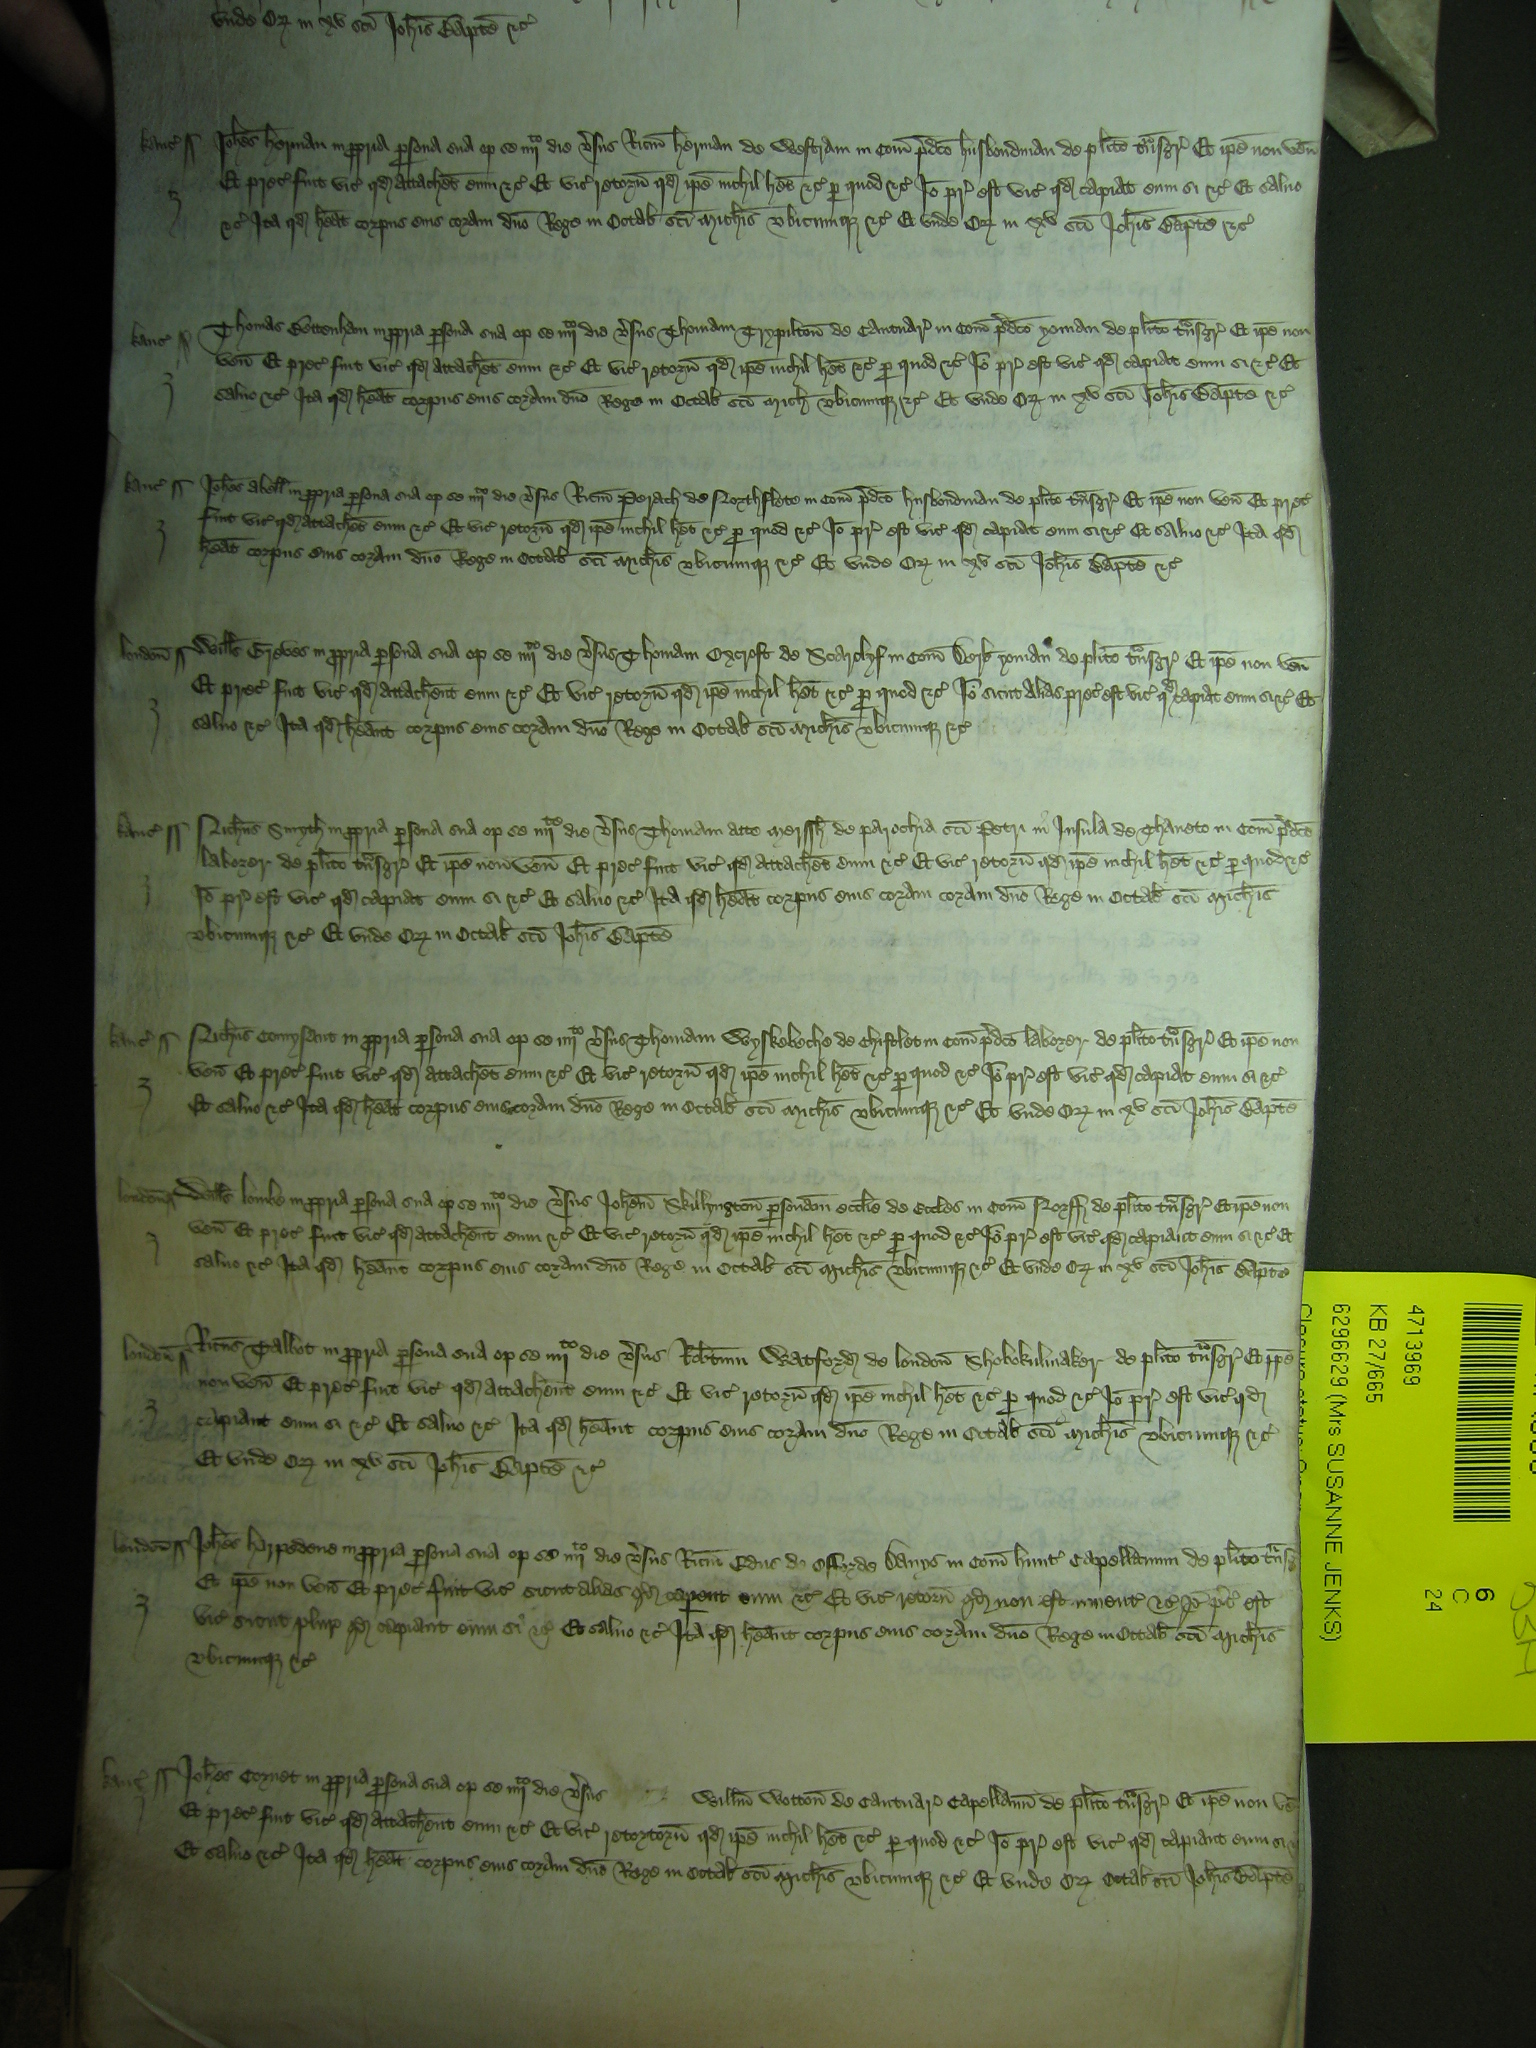 unde Orr in xv sci Johis Bapte &c
kanc ss Johes herman in ppria psona sua op se iiijto die vsus Ricm herman de Westram in Com pdco husbondman de plito tnsgr Et ipe non ven
Et prec fuit vic qd attachet eum &c Et vic retorn qd ipe nichil het &c p quod &c Io pr est vic qd capiat eum si &c Et salvo
&c Ita qd heat corpus eius coram dno Rege in Octab sci Michis ubicumq &c Et unde Orr in xv sci Johis Bapte &c
kanc ss Thomas Bottenham in ppria psona sua op se iiijto die vsus Thomam Trypilton de Cantuar in Com pdco yoman de plito tnsgr Et ipe non
ven Et prec fuit vic qd attachet eum &c Et vic retorn qd ipe nichil het &c p quod &c Io pr est vic qd capiat eum si &c Et
salvo &c Ita qd heat corpus eius coram dno Rege in Octab sci Mich ubicumq &c Et unde Orr in xv sci Johis Bapte &c
kanc ss Johes abell in ppria psona sua op se iiijto die vsus Ricm Perach de Northflete in Com pdco husbondman de plito tnsgr Et ipe non ven Et prec
fuit vic qd attachet eum &c Et vic retorn qd ipe nichil het &c p quod &c Io pr est vic qd capiat eum si &c Et salvo &c Ita qd
heat corpus eius coram dno Rege in Octab sci Michis ubicumq &c Et unde Orr in xv sci Johis Bapte &c
london ss Wills Greves in ppria psona sua op se iiijto die vsus Thomam Oxcroft de Scarclyf in Com Derb yoman de plito tnsgr Et ipe non ven
Et prec fuit vic qd attachent eum &c Et vic retorn qd ipe nichil het &c p quod &c Io sicut alias prec est vic qd capiat eum si &c Et
salvo &c Ita qd heant corpus eius coram dno Rege in Octab sci Michis ubicumq &c
kanc ss Nichus Smyth in ppria psona sua op se iiijto die vsus Thomam atte Merssh de parochia sci Petri in Insula de Thaneto in Com pdco
laborer de plito tnsgr Et ipe non ven Et prec fuit vic qd attachet eum &c Et vic retorn qd ipe nichil het &c p quod &c
Io pr est vic qd capiat eum si &c Et salvo &c Ita qd heat corpus eius coram coram dno Rege in Octab sci Michis
ubicumq &c Et unde Orr in Octab sci Johis Bapte
kanc ss Nichus Comysant in ppria psona sua op se iiijto vsus Thomam Wyskebeche de Chistlet in Com pdco laborer de plito tnsgr Et ipe non
ven Et prec fuit vic qd attachet eum &c Et vic retorn qd ipe nichil het &c p quod &c Io pr est vic qd capiat eum si &c
Et salvo &c Ita qd heat corpus eius coram dno Rege in Octab sci Michis ubicumq &c Et unde Orr in xv sci Johis Bapte
london ss Wills lombe in ppria psona sua op se iiijto die vsus Johem Skillyngton psonam ecclie de Eccles in Com Norff de plito tnsgr Et ipe non
ven Et prec fuit vic qd attachent eum &c Et vic retorn qd ipe nichil het &c p quod &c Io pr est vic qd capiant eum si &c Et
salvo &c Ita qd heant corpus eius coram dno Rege in Octab sci Michis ubicumq &c Et unde Orr in xv sci Johis Bapte
london ss Ricus Talbot in ppria psona sua op se iiijto die vsus Robtum Watford de london Thobokulmaker de plito tnsgr Et ipe
non ven Et prec fuit vic qd attachent eum &c Et vic retorn qd ipe nichil het &c p quod &c Io pr est vic qd
capiant eum si &c Et salvo &c Ita qd heant corpus eius coram dno Rege in Octab sci Michis ubicumq &c
Et unde Orr in xv sci Johis Bapte &c
london ss Johes harpedene in ppria psona sua op se iiijto die vsus Ricm Edns de Offorde Danys in Com hunt Capellanum de plito tnsg
Et ipe non ven Et prec fuit vic sicut alias qd caperent eum &c Et vic retorn qd non est invent &c Io pr est
vic sicut plur qd capiant eum si &c Et salvo &c Ita qd heant corpus eius coram dno Rege in Octab sci Michis
ubicumq &c
kanc ss Johes Cornet in ppria psona sua op se iiijto die vsus Willm Wotton de Cantuar Capellann de plito tnsgr Et ipe non ve
Et prec fuit vic qd attachent eum &c Et vic retortorn qd ipe nichil het &c p quod &c Io pr est vic qd capiant eum si
Et salvo &c Ita qd heat corpus eius coram dno Rege in Octab sci Michis ubicumq &c Et unde Orr Octab sci Johis Bapte
4713969
KB 27/665
6296629 (Mrs SUSANNE JENKS)
6
C
24